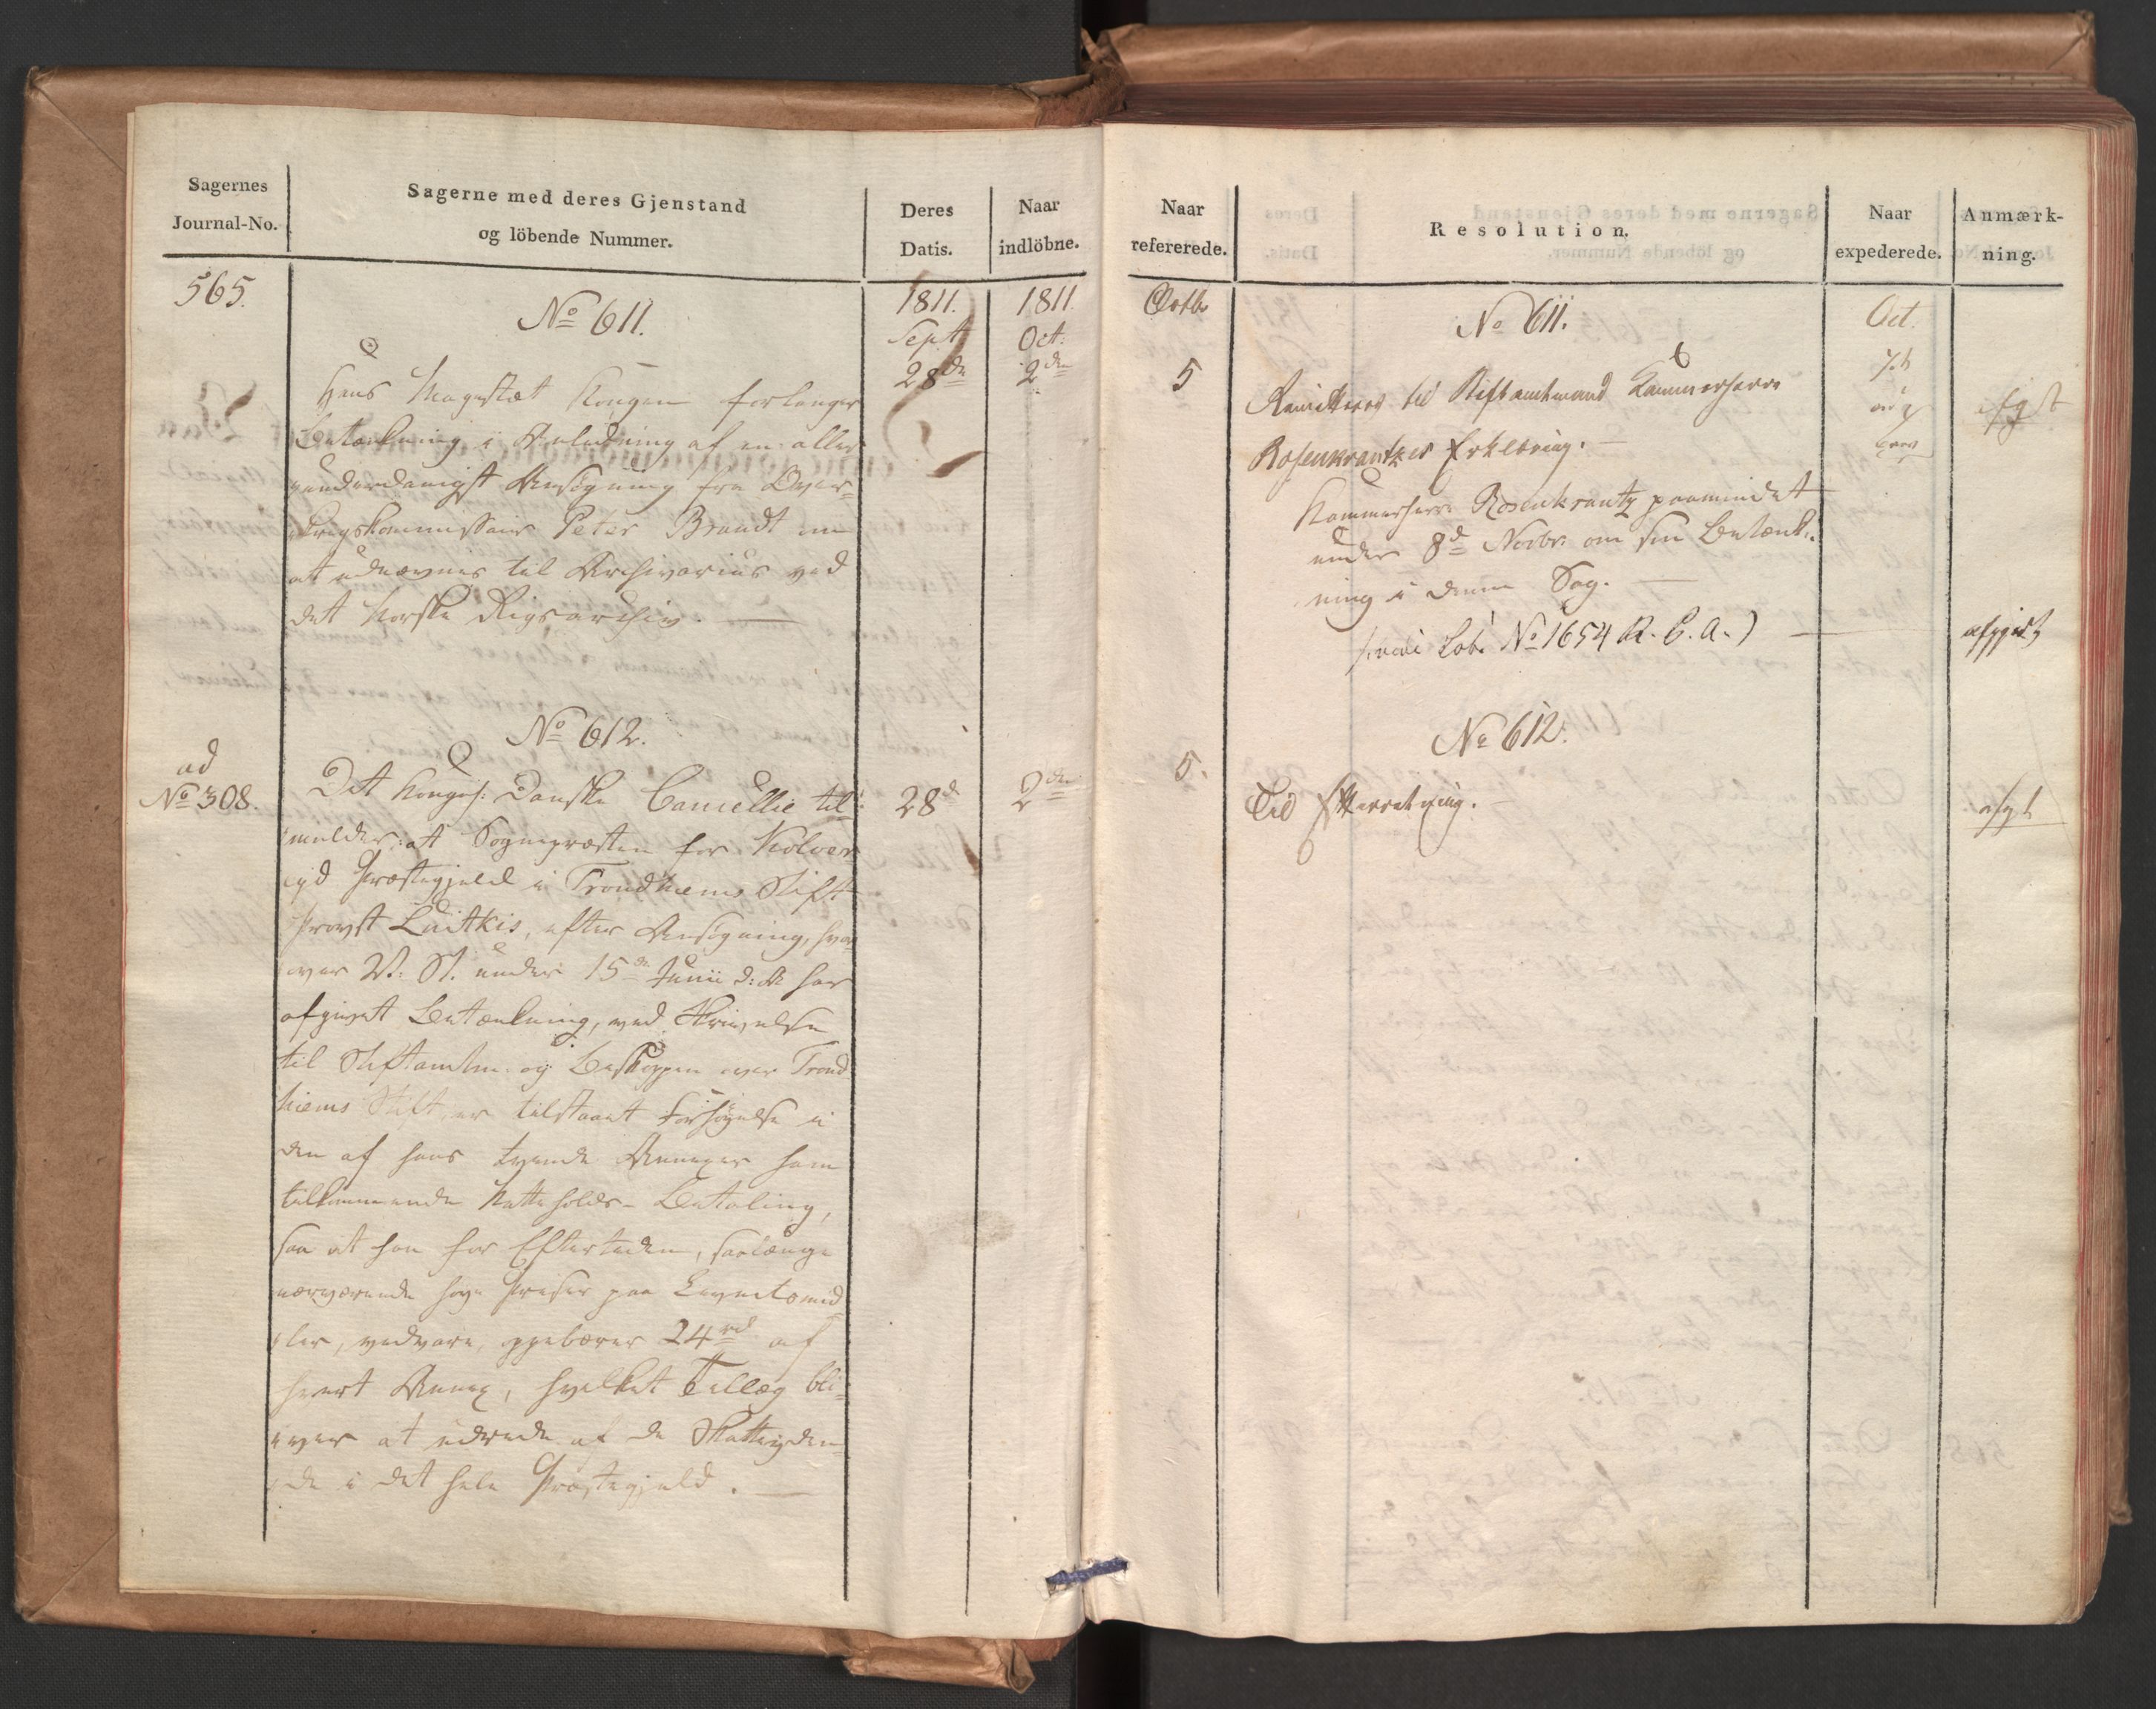 Sagernes
Journal-No.
Sagerne med deres Gjenstand
og löbende Nummer.
Deres
Datis.
Naar
indlöbne.
565.
No 611.
1811.
Sept
28de
1811
Oct:
2den
Hans Magestæt Kongen forlanger
Betænkning i Anledning af en aller
underdanigst Ansøgning fra Over-
krigskommissair Peter Brandt om
at udnævnes til Archivarius ved
det Norske Rigsarchiv. —
ad
No 308.
No 612.
28d
2den
Det Kongel: Danske Cancellie til-
melder, at Sognepræsten for Kolver
eid Præstegjeld i Trondhiems Stift
Provst Luitkis, efter Ansøgning, hvor
over V. St. under 15de Junii d: A: har
afgivet Betænkning, ved Skrivelse
til Stiftamtm: og Biskoppen over Trond
hiems Stift, er tilstaaet Forhøyelse i
den af hans tvende Annexer ham
tilkommende Natteholds-Betaling,
saa at han for Eftertiden, saalænge
nærværende høye Priser paa Levnetsmid
ler, vedvare, oppebærer 24 rd af
hvert Annex, hvilket Tillæg bli-
ver at udrede af de Skatteyden-
de i det hele Præstegjeld. —
Naar
refererede.
Resolution.
Naar
expederede.
Anmærk-
ning.
Octbr
No 611.
Oct.
5
Remitteres til Stiftamtmand Kammerherre
Rosenkrantzes Erklæring. —
afgt
Kammerherre Rosenkrantz paamindet
under 8d Novbr. om sin Betænk-
ning i denne Sag. —
(vide Lob. No 1654 R. C. A.) —
afgjort
No 612.
5.
Til Efterretning. —
afgt